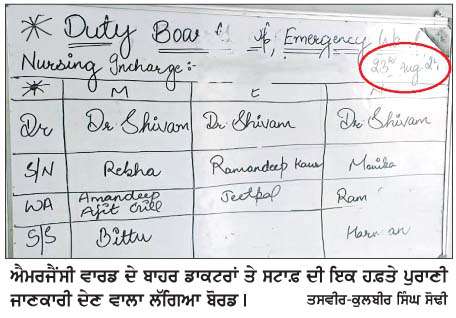 * Duty Boa
Emergency
Nursing Incharge:-
23rd Aug 24
* M E
Dr Dr Shivam Dr Shivam Dr Shivam
S/N Rekha Ramandeep Kaur Monika
WA Amandeep Jeetpal Ram
Ajit Gill
S/S Bittu
ਐਮਰਜੈਂਸੀ ਵਾਰਡ ਦੇ ਬਾਹਰ ਡਾਕਟਰਾਂ ਤੇ ਸਟਾਫ਼ ਦੀ ਇਕ ਹਫ਼ਤੇ ਪੁਰਾਣੀ
ਜਾਣਕਾਰੀ ਦੇਣ ਵਾਲਾ ਲੱਗਿਆ ਬੋਰਡ। ਤਸਵੀਰ-ਕੁਲਬੀਰ ਸਿੰਘ ਸੋਢੀ